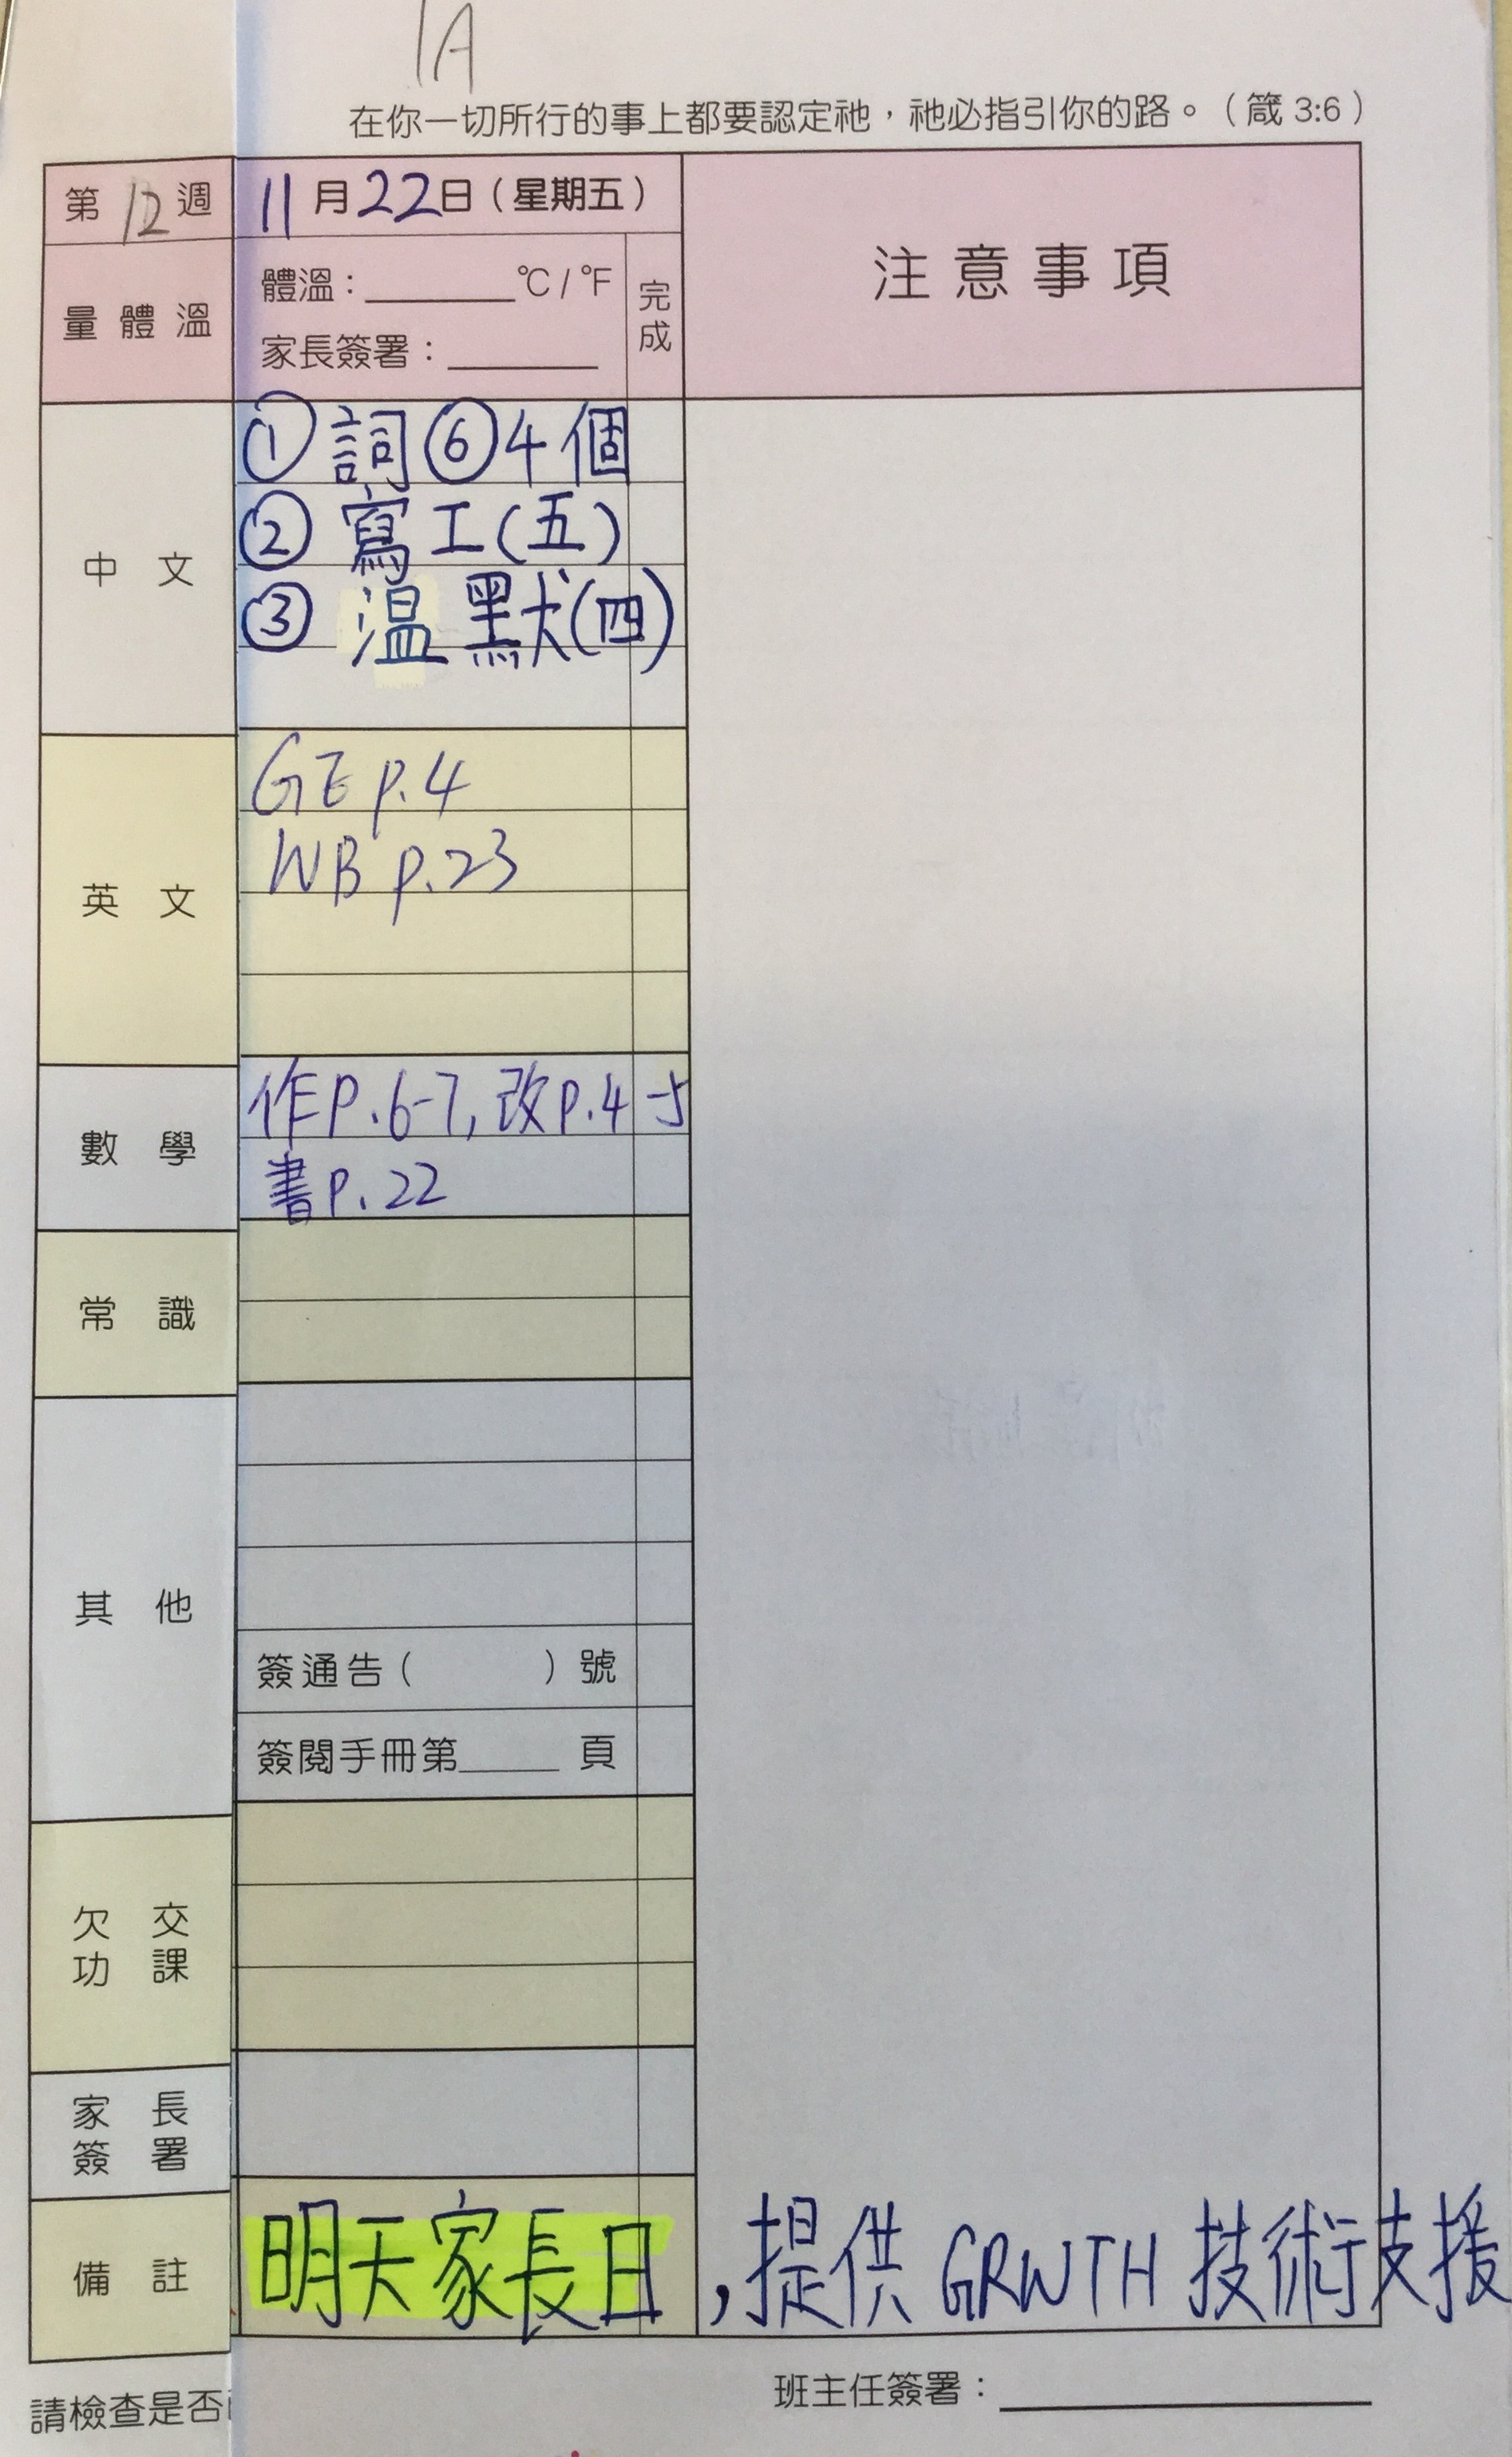 1A
在你一切所行的事上都要認定祂，祂必指引你的路。（箴 3:6）
第 12 週
11 月 22 日（星期五）
注意事項
量體溫
體溫：______℃/℉
家長簽署：______
完成
中文
① 詞⑥4個
② 寫工(五)
③ 温默(四)
英文
GE p.4
WB p.23
數學
作P.6-7, 改P.4-5
書P.22
常識
其他
簽通告（ ）號
簽閱手冊第____頁
欠交
功課
家長
簽署
備註
明天家長日，提供 GRWTH 技術支援
班主任簽署：
請檢查是否